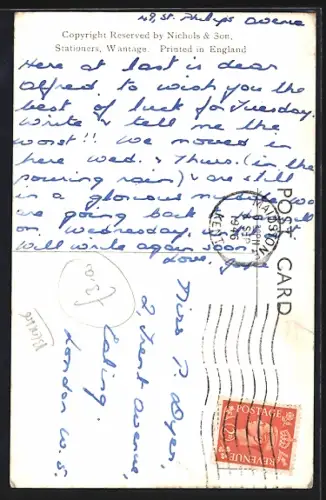 49, St. Philips Avenue
Copyright Reserved by Nichols & Son,
Stationers, Wantage. Printed in England
Here at last is dear
Alfred to wish you the
best of luck for Tuesday.
Write & tell me the
worst!! We moved in
here Wed. & Thurs. (in the
pouring rain) & are still
in a glorious
are going back
on Wednesday,
will write again soon.
Love,
POST CARD
MAIDSTONE
SEP
1946
KENT
Miss P. Dyer,
2, Trent Avenue,
Ealing,
London W.5.
POSTAGE
REVENUE